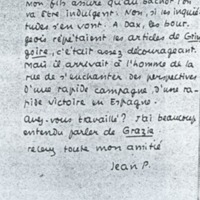 mon fils assure qu'au
va être indulgent. Non, si les inquié-
tudes s'en vont. A Dax, les bour-
geois répétaient les articles de Grin-
goire, c'était assez décourageant.
Mais il arrivait à l'homme de la
rue de s'enchanter des perspectives
d'une rapide campagne d'une ra-
pide victoire en Espagne.
Avez-vous travaillé ? J'ai beaucoup
entendu parler de Grazie
toute mon amitié
Jean P.